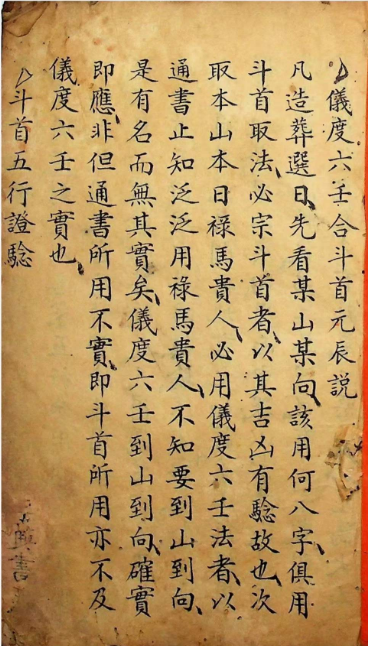 儀度六壬合斗首元辰説
凡造葬選日、先看某山某向、該用何八字、俱用
斗首取法、必宗斗首者、以其吉凶有驗故也、次
取本山本日祿馬貴人、必用儀度六壬法者、以
通書止知泛泛用祿馬貴人、不知要到山到向、
是有名而無其實矣、儀度六壬到山到向、確實
即應、非但通書所用不實、即斗首所用亦不及
儀度六壬之實也、
斗首五行證驗